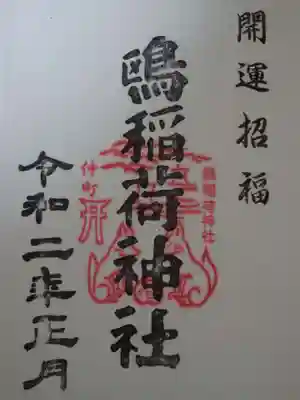 開運招福
鴎稲荷神社
仲町
令和二年正月